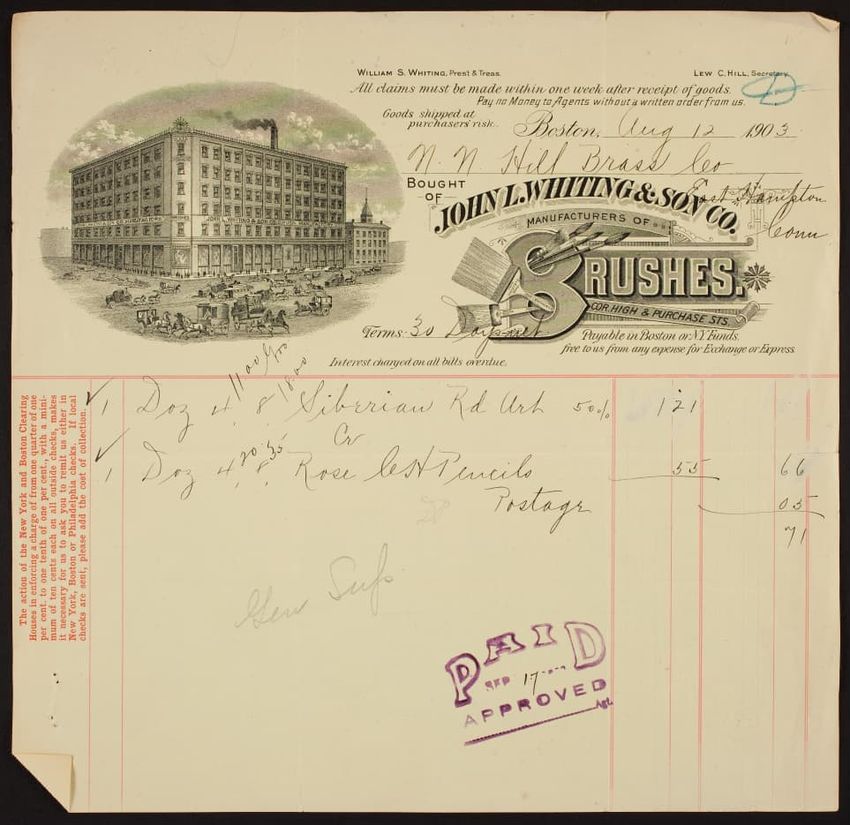 WILLIAM S. WHITING, Prest & Treas. LEW C. HILL, Secretary.
All claims must be made within one week after receipt of goods.
Pay no Money to Agents without a written order from us.
Goods shipped at
purchasers' risk.
Boston, Aug 12 1903
N. N Hill Brass Co
East Hampton
Conn
BOUGHT
OF
JOHN L. WHITING & SON CO.
MANUFACTURERS OF
BRUSHES.
COR. HIGH & PURCHASE STS.
Terms: 30 Days net
Payable in Boston or N.Y. Funds.
free to us from any expense for Exchange or Express.
Interest charged on all bills overdue.
The action of the New York and Boston Clearing
Houses in enforcing a charge of from one quarter of one
per cent. to one tenth of one per cent., with a mini-
mum of ten cents each on all outside checks, makes
it necessary for us to ask you to remit us either in
New York, Boston or Philadelphia checks. If local
checks are sent, please add the cost of collection.
18.00
1 Doz 4 8 Siberian Rd Art 50% 121
Cr
20 .35
1 Doz 4 8 Rose CH Pencils 55 66
Postage 05
71
Gen Sup
PAID
SEP 17
APPROVED